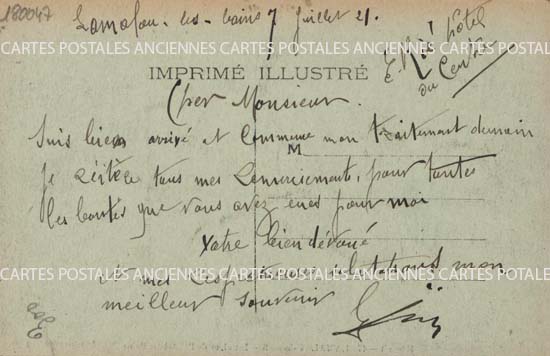 180047
Lamalou-les-bains 7 Juillet 21.
Hôtel
du Centre
CARTES POSTALES ANCIENNES CARTES POSTALES ANCIENNES CARTES POSTALES ANCIENNES
IMPRIMÉ ILLUSTRÉ
Cher Monsieur.
Suis bien arrivé et commence mon traitement demain
M
Je réitère tous mes remerciements, pour toutes
les bontés que vous avez eues pour moi
Votre bien dévoué
CARTES POSTALES ANCIENNES CARTES POSTALES ANCIENNES CARTES POSTALES ANCIENNES
et mes respectueuses salutations mon
meilleur souvenir